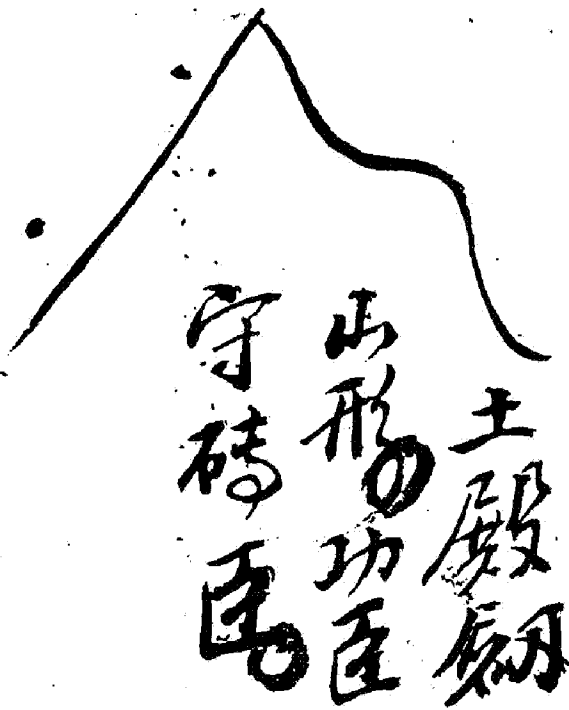 土殿
山形の功臣
守磚臣